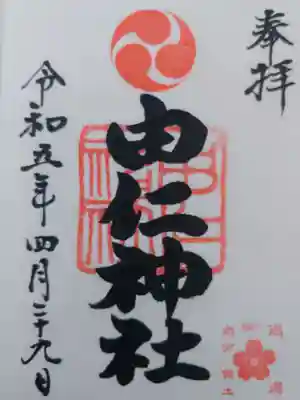 奉拝
由仁神社
令和五年四月二十九日